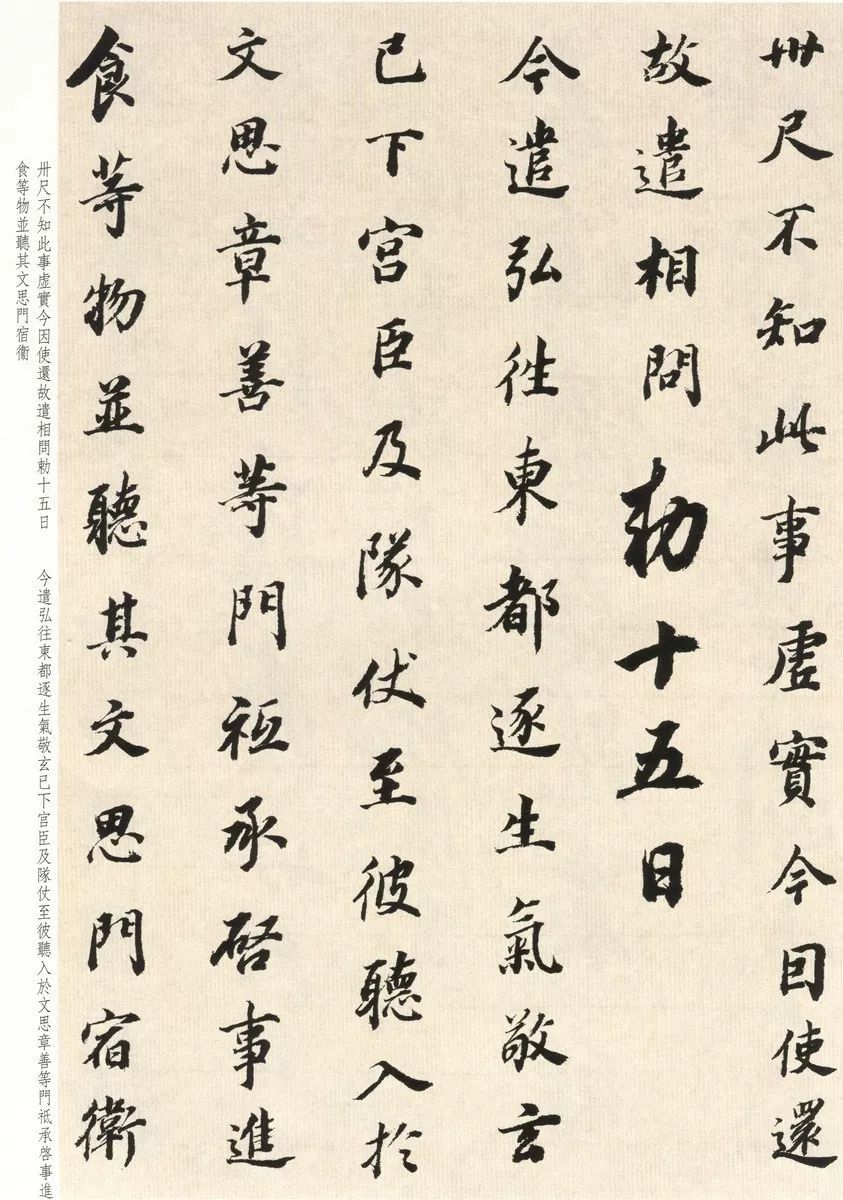 卅尺不知此事虛實今因使還
故遣相問勅十五日
今遣弘往東都逐生氣敬玄
已下宮臣及隊仗至彼聽入於
文思章善等門祗承啓事進
食等物並聽其文思門宿衛
卅尺不知此事虛實今因使還故遣相問勅十五日　今遣弘往東都逐生氣敬玄已下宮臣及隊仗至彼聽入於文思章善等門祗承啓事進
食等物並聽其文思門宿衛